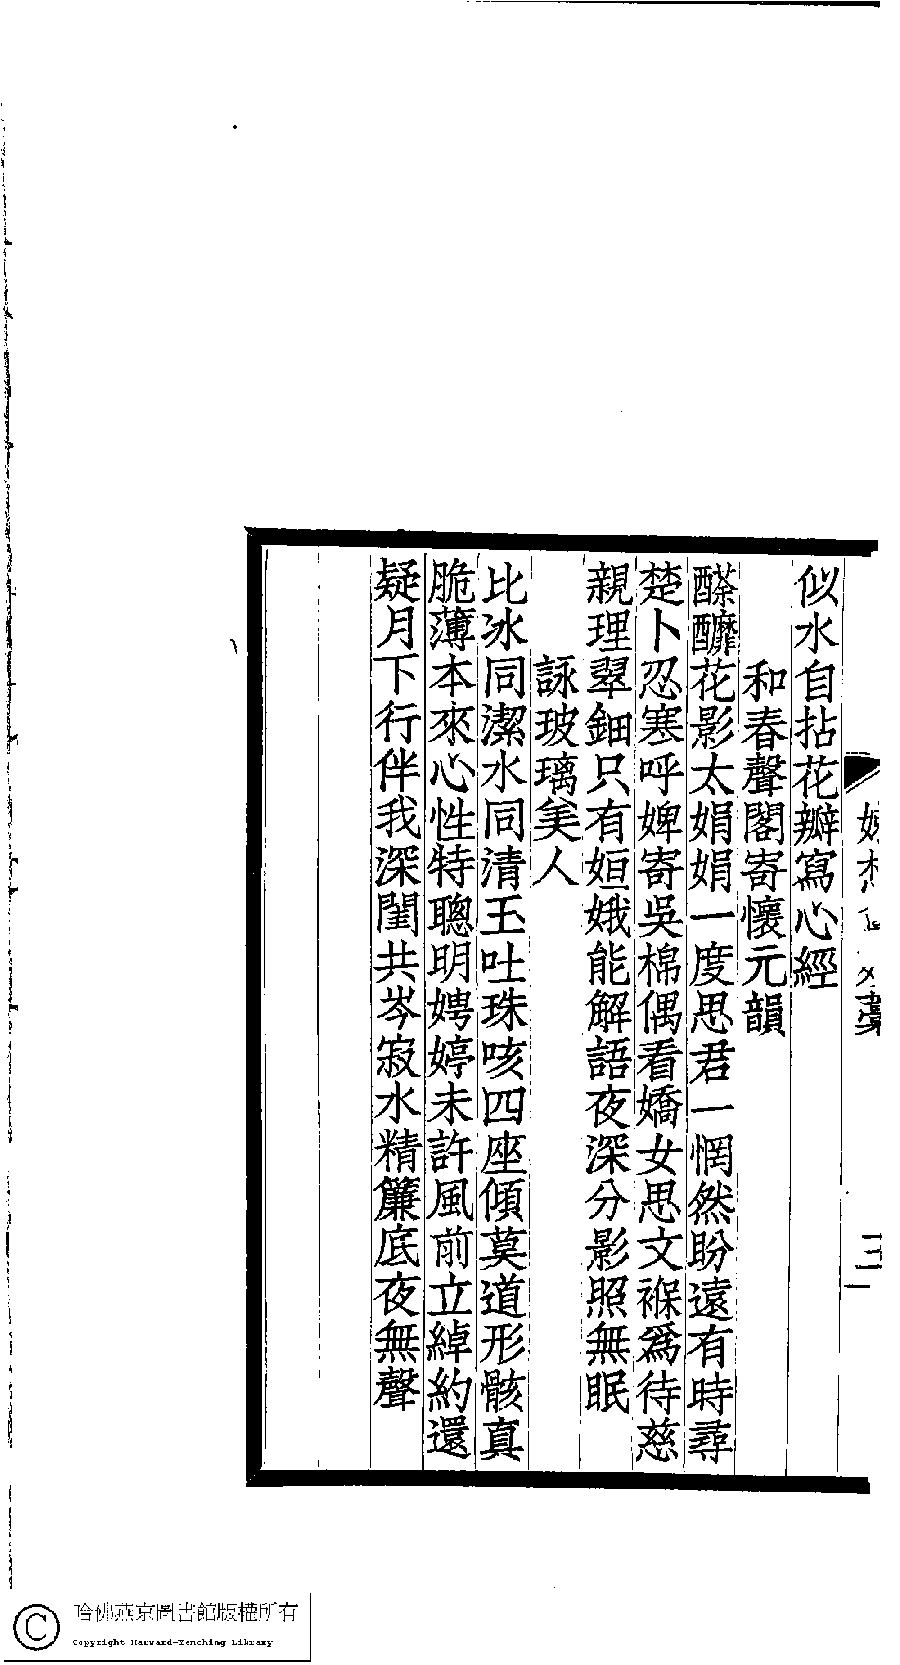 似水自拈花瓣寫心經
和春聲閣寄懷元韻
醾醿花影太娟娟一度思君一惘然盼遠有時尋
楚卜忍寒呼婢寄吳棉偶看嬌女思文褓爲待慈
親理翠鈿只有姮娥能解語夜深分影照無眠
詠玻璃美人
比冰同潔水同清玉吐珠咳四座傾莫道形骸真
脆薄本來心性特聰明娉婷未許風前立綽約還
疑月下行伴我深閨共岑寂水精簾底夜無聲
三
哈佛燕京圖書館版權所有
Copyright Harvard-Yenching Library